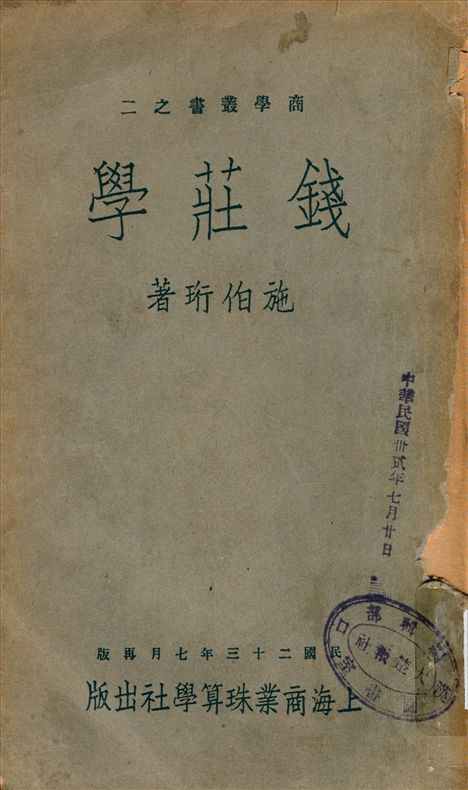 商學叢書之二
錢莊學
施伯珩著
中華民國卅貳年七月廿日
輯部
大楚報社
圖書室
民國二十三年七月再版
上海商業珠算學社出版